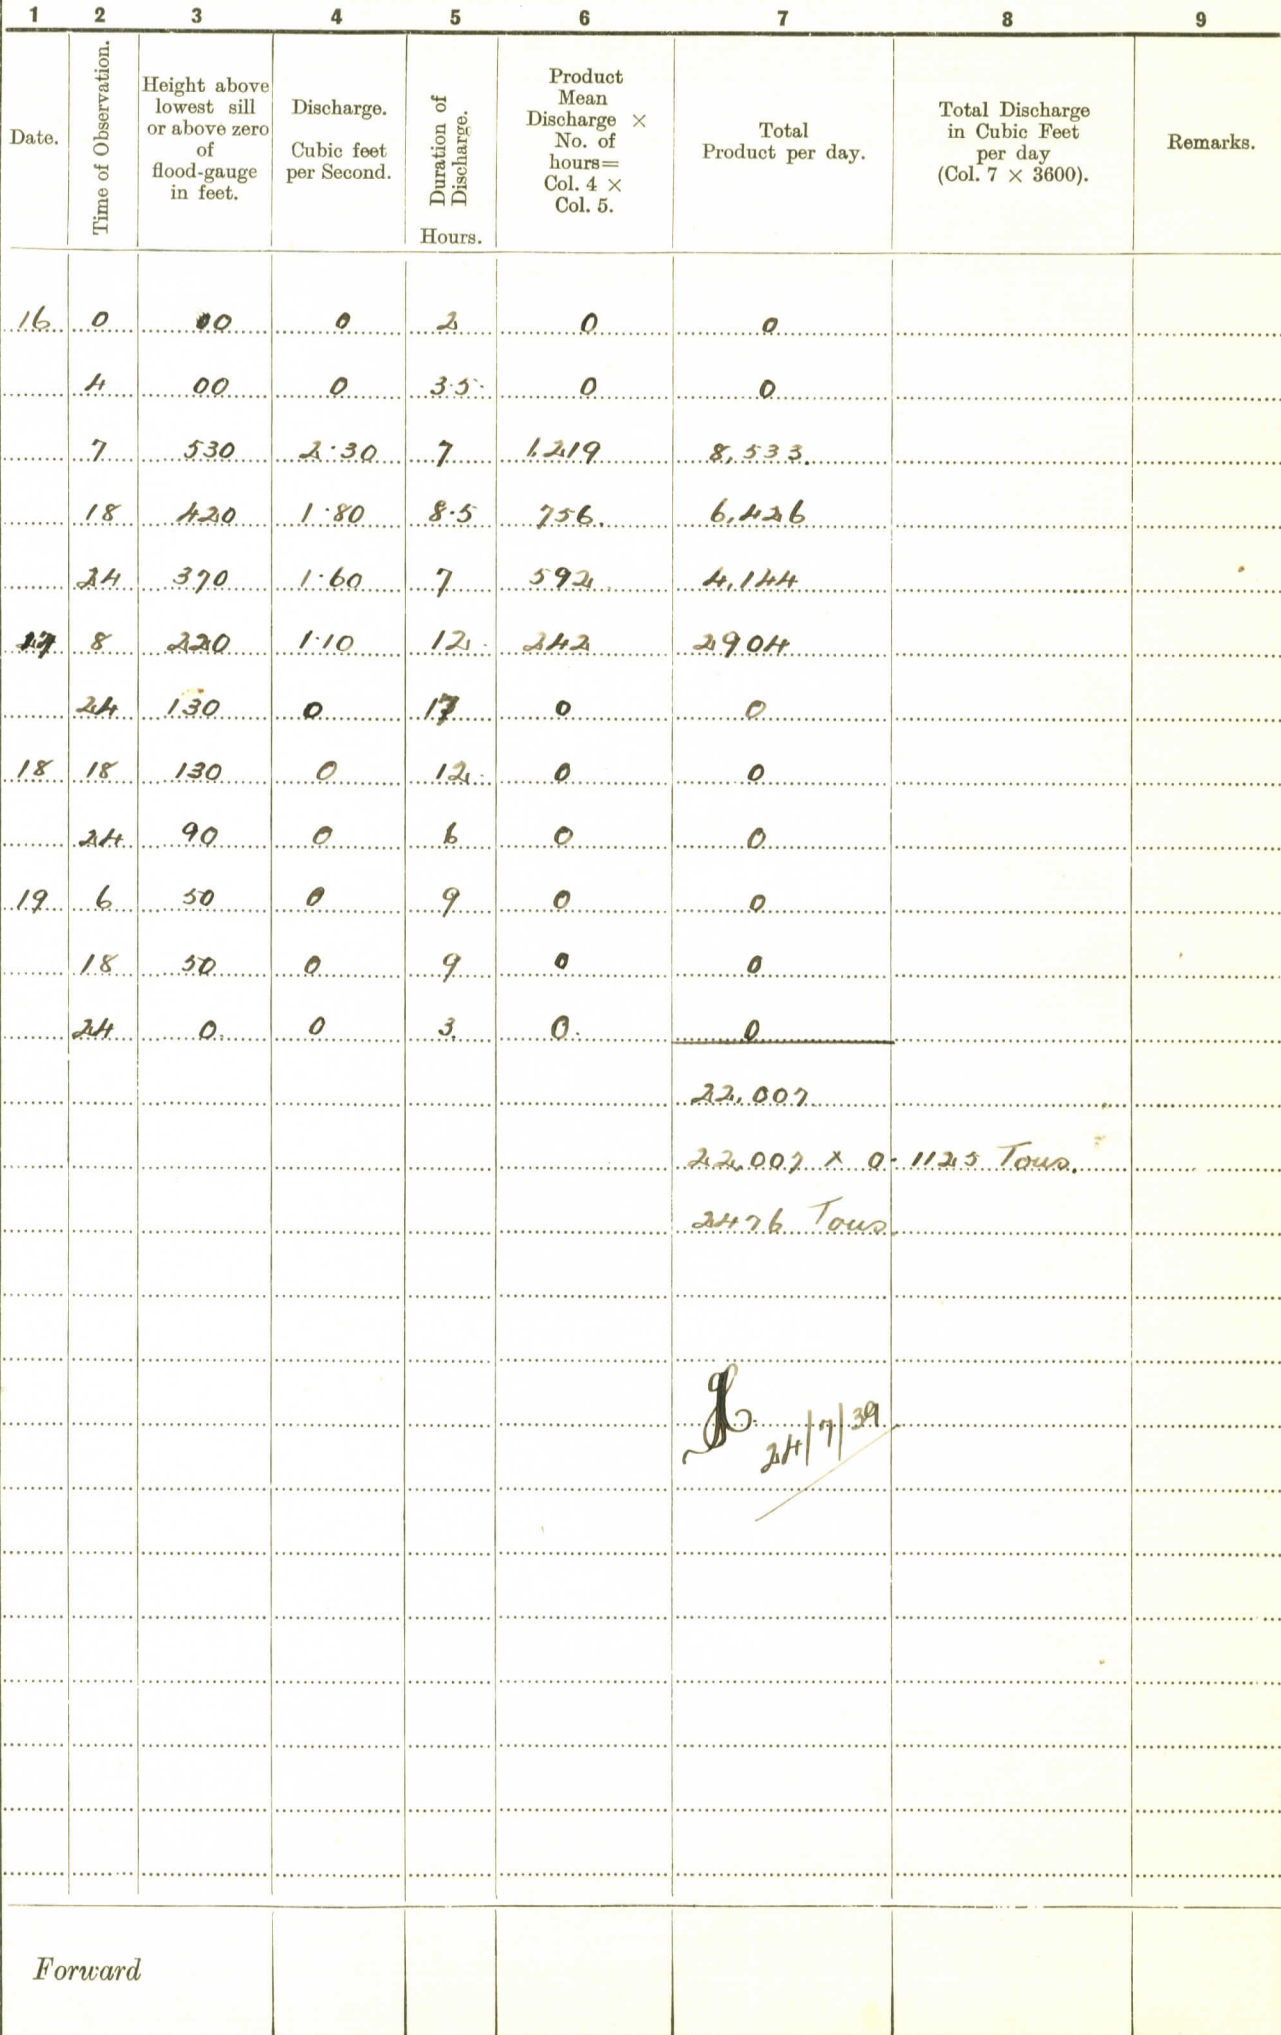 1 2 3 4 5 6 7 8 9
Date. Time of Observation. Height above lowest sill or above zero of flood-gauge in feet. Discharge. Cubic feet per Second. Duration of Discharge. Hours. Product Mean Discharge × No. of hours= Col. 4 × Col. 5. Total Product per day. Total Discharge in Cubic Feet per day (Col. 7 × 3600). Remarks.
16 0 00 0 2 0 0
4 00 0 3·5 0 0
7 530 2·30 7 1,219 8,533.
18 420 1·80 8·5 756. 6,426
24 370 1·60 7 592 4,144
17 8 220 1·10 12 242 2904
24 130 0 17 0 0
18 18 130 0 12 0 0
24 90 0 6 0 0
19 6 50 0 9 0 0
18 50 0 9 0 0
24 0. 0 3. 0. 0
22,007
22,007 × 0·1125 Tons.
2476 Tons
24/7/39
Forward